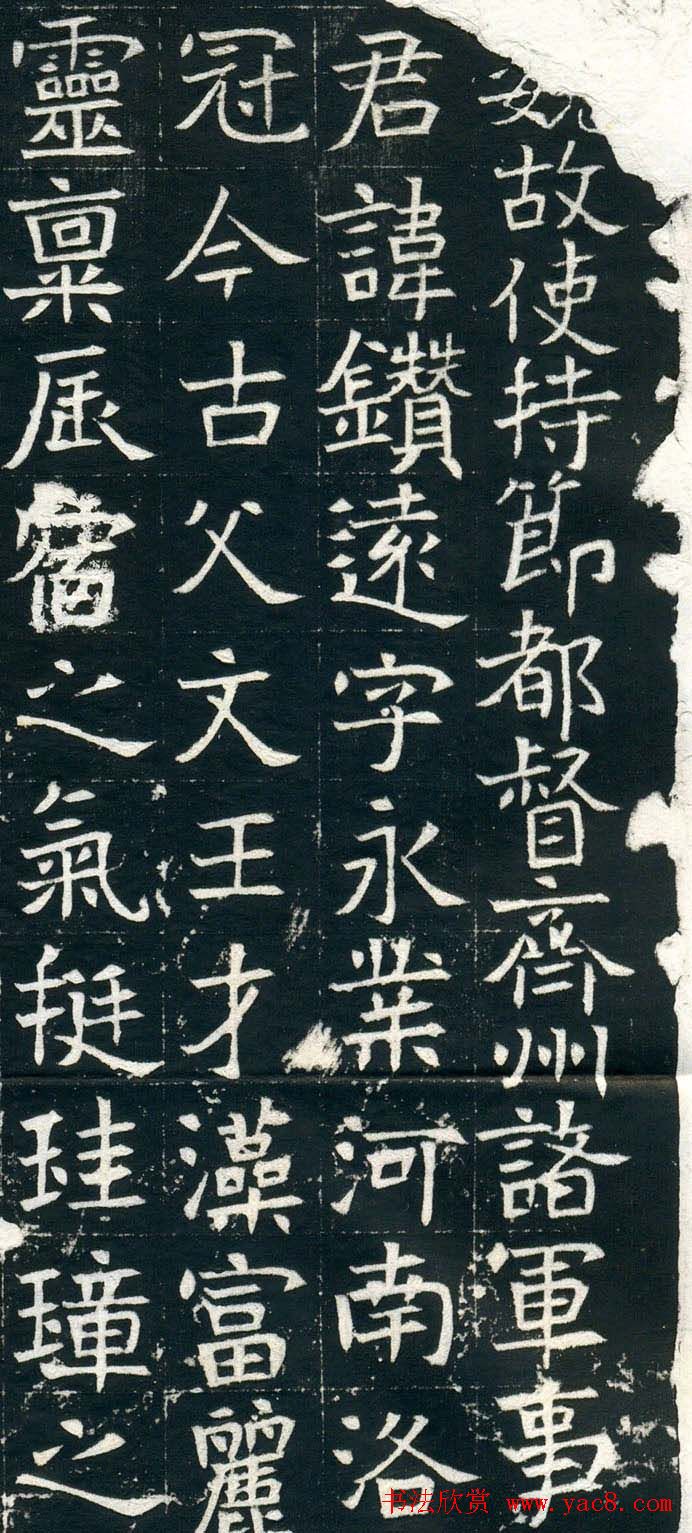 魏故使持節都督齊州諸軍事
君諱鑽遠字永業河南洛
冠今古父文王才藻富麗
靈稟辰宿之氣挺珪璋之
书法欣赏 www.yac8.com